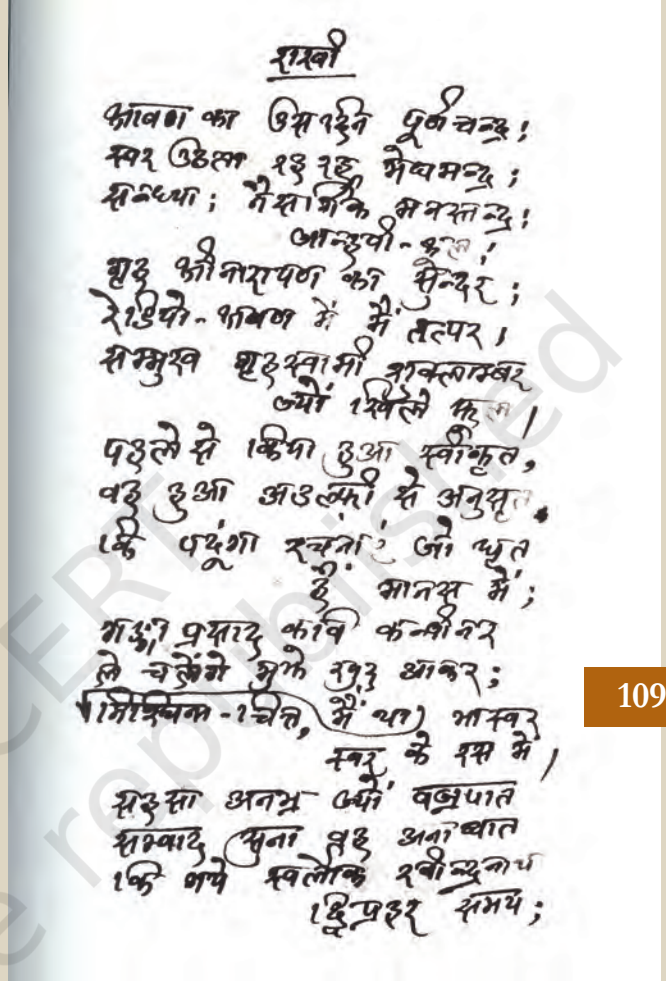 राखी
श्रावण का उस दिन पूर्ण चन्द्र;
स्वर उठता रह रह मेघमन्द्र;
सन्ध्या; नैसर्गिक मनस्तन्द्र;
जान्हवी-कूल;
गृह श्रीनारायण का सुन्दर;
रेडियो-श्रवण में मैं तत्पर,
सम्मुख गृहस्वामी शुक्लाम्बर
ज्यों खिले फूल।
पहले से किया हुआ स्वीकृत,
वह हुआ से अनुसृत,
कि पढ़ूंगा रचनाएं जो धृत
हैं मानस में;
गङ्गा प्रसाद कवि
ले चलेंगे मुझे खुद आकर;
निश्चिन्त-चित्त, मैं था) भास्वर
स्वर के रस में।
सहसा अनभ्र ज्यों वज्रपात
सम्वाद सुना वह
कि गये स्वर्लोक रवीन्द्रनाथ
द्विप्रहर समय;
109
CERT
be republished